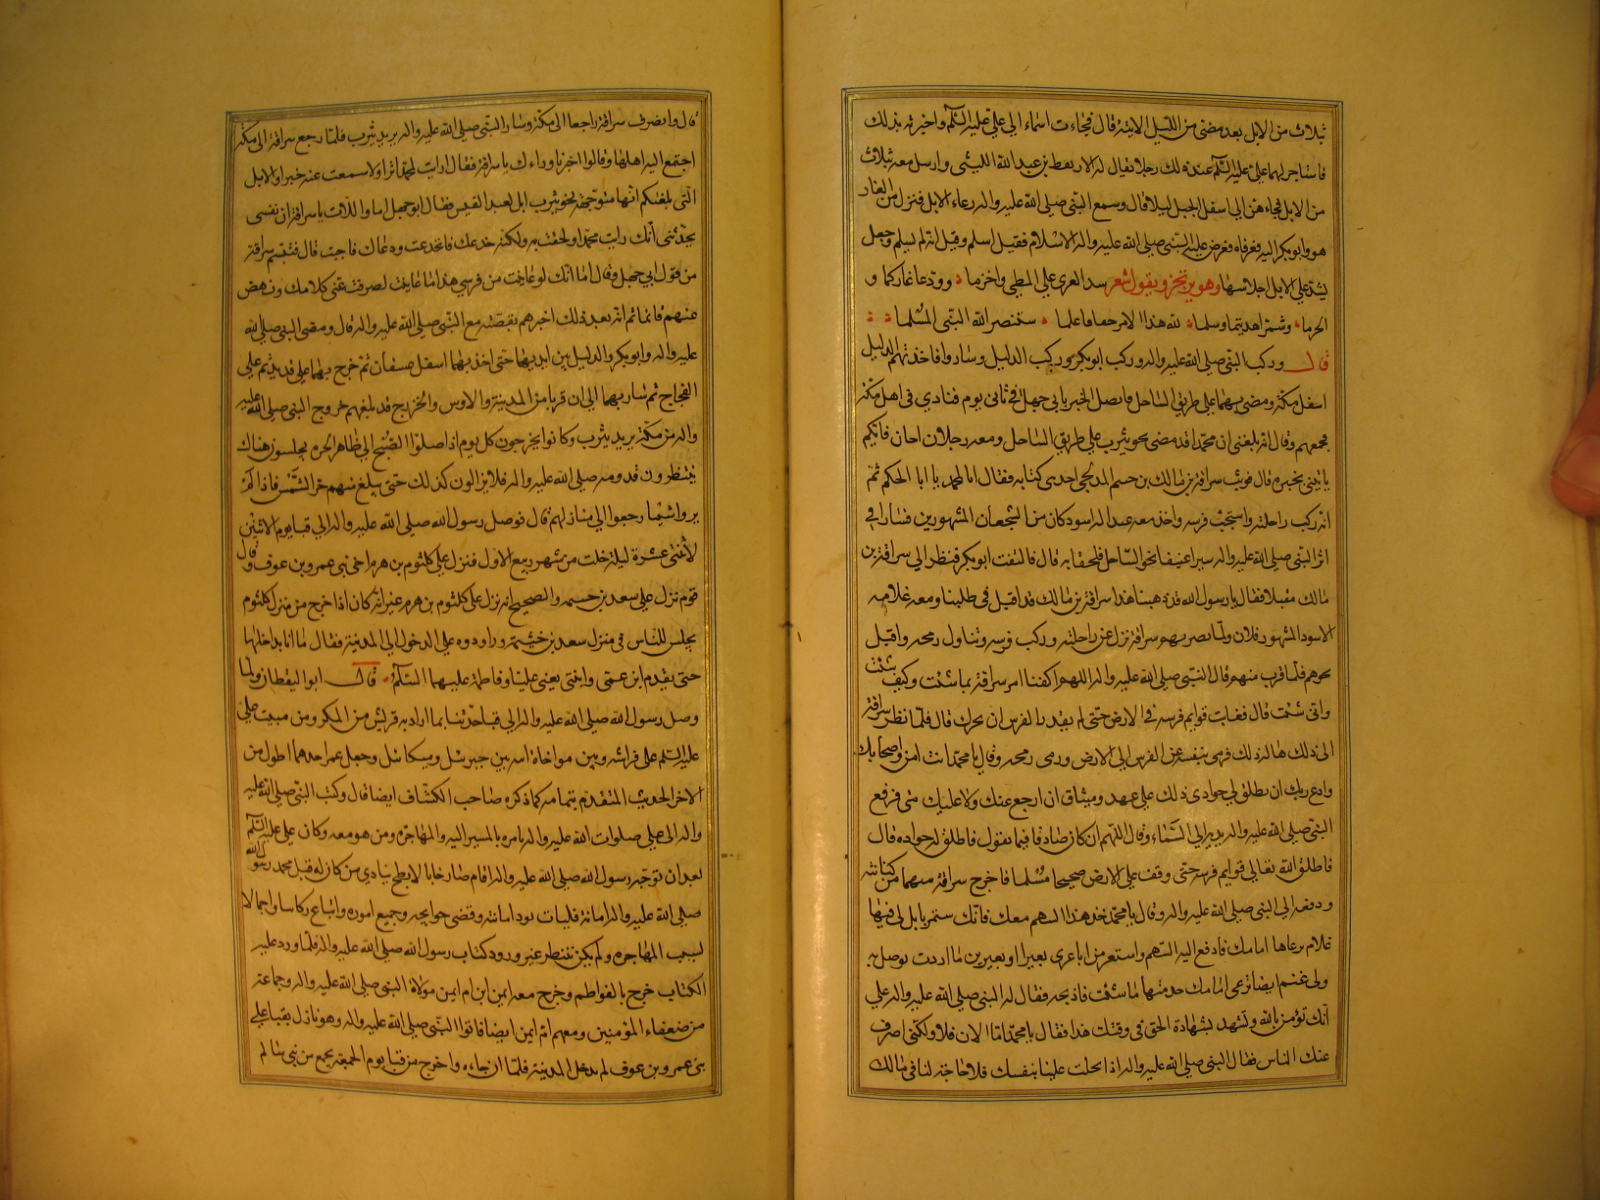 ثلاث من الابل بعد مضى من الليل الاتية قال فجاءت اسماء الى علي عليه السلم واخبرته بذلك
فاستاجر لهما علي عليه السلم عند ذلك رجلا يقال له الاريقط بن عبد الله الليثي وارسل معه ثلاث
من الابل فجاء هن الى اسفل الجبل ليلا قال وسمع النبي صلى الله عليه واله رغاء الابل فنزل من الغار
هو وابو بكر اليه فعرفاه فعرض عليه النبي صلى الله عليه واله الاسلام فقيل اسلم وقيل انه لم يسلم وجعل
يشد على الابل احلاسها وهو يرتجز ويقول شعر سد العرى على المطي واخزما وودعا غاركما و
الحرما وشمرا هديتما وسلما لله هذا الامر حقا فاعلما سينصر الله النبي المسلما
قال وركب النبي صلى الله عليه واله وركب ابو بكر وركب الدليل وساروا فاخذ بهم الدليل
اسفل مكة ومضى بهما على طريق الساحل فاتصل الخبر بابي جهل في ثاني يوم فنادى في اهل مكة
فجمعهم وقال انه بلغني ان محمدا قد مضى نحو يثرب على طريق الساحل ومعه رجلان اخران فايكم
ياتيني بخبره قال فوثب سراقة بن مالك بن جسم المدلجي احد بني كنانه فقال انا لمحمد يا ابا الحكم ثم
انه ركب راحلته واستجنب فرسه واخذ معه عبدا له اسود كان من الشجعان المشهورين فسار في
اثر النبي صلى الله عليه واله سيرا عنيفا نحو الساحل فلحقا به قال فالتفت ابو بكر فنظر الى سراقة بن
مالك مقبلا فقال يا رسول الله قد دهينا هذا سراقة بن مالك قد اقبل في طلبنا ومعه غلامه
الاسود المشهور فلان ولما بصر بهم سراقة نزل عن راحلته وركب فرسه وتناول رمحه واقبل
نحوهم فلما قرب منهم قال النبي صلى الله عليه واله اللهم اكفنا امر سراقة بما شئت وكيف شئت
وانى شئت قال فغابت قوايم فرسه في الارض حتى لم يقدر الفرس ان يحرك قال فلما نظر سراقة
الى ذلك هاله ذلك فرمى بنفسه عن الفرس الى الارض ورمى رمحه وقال يا محمد انت امن واصحابك
وادع ربك ان يطلق لي جوادي ذلك علي عهد وميثاق ان ارجع عنك ولا عليك منى فرفع
النبي صلى الله عليه واله يديه الى السماء وقال اللهم ان كان صادقا فيما يقول فاطلق له جواده قال
فاطلق الله تعالى قوايم فرسه حتى وقف على الارض صحيحا مسلما فاخرج سراقة سهما من كنانته
ودفعه الى النبي صلى الله عليه واله وقال يا محمد خذ هذا السهم معك فانك ستمر بابل لي فيها
غلام يرعاها امامك فادفع اليه السهم واستعر من اباعري بعيرا او بعيرين ما اردت توصل به
ولى غنم ايضا ترعى امامك خذ منها ما شئت فاذبحه فقال له النبي صلى الله عليه واله على
انك تؤمن بالله وتشهد بشهادة الحق في وقتك هذا فقال يا محمد اما الان فلا ولكنى اصرف
عنك الناس فقال النبي صلى الله عليه واله اذا بخلت علينا بنفسك فلا حاجة لنا في مالك
قال وانصرف سراقة راجعا الى مكة وسار النبي صلى الله عليه واله يريد يثرب فلما رجع سراقة الى مكة
اجتمع اليه اهلها وقالوا اخبرنا وراءك يا سراقة فقال ما رايت لمحمد اثرا ولا سمعت عنه خبرا والابل
التي بلغتكم انها متوجهة نحو يثرب ابل لعبد القيس فقال ابو جهل اما واللات يا سراقة ان نفسى
يحدثنى انك رايت محمدا ولحقت به ولكنه خدعك فانخدعت ودعاك فاجبت قال فتبسم سراقة
من قول ابي جهل وقال اما انك لو عاينت من فرسي هذا ما عاينت لصرفت عنى كلامك ونهض
عنهم فانما ثم انه بعد ذلك اخبرهم بقصته مع النبي صلى الله عليه واله قال ومضى النبي صلى الله
عليه واله وابو بكر والدليل بين ايديهما حتى اخذ بهما اسفل عسفان ثم خرج بهما على قديد ثم على
الفجاج ثم سار بهما الى ان قربا من المدينة والاوس والخزرج قد بلغهم خروج النبي صلى الله عليه
واله من مكة يريد يثرب وكانوا يخرجون كل يوم اذا صلوا الصبح الى ظاهر الحره يجلسون هناك
ينتظرون قدومه صلى الله عليه واله فلا يزالون كذلك حتى يبلغ منهم حر الشمس فاذا لم
يروا شيئا رجعوا الى منازلهم قال فوصل رسول الله صلى الله عليه واله الى قبا يوم الاثنين
لاثنتى عشرة ليلة خلت من شهر ربيع الاول فنزل على كلثوم بن هرم اخي بني عمرو بن عوف وقال
قوم نزل على سعد بن خيثمة والصحيح انه نزل على كلثوم بن هرم غير انه كان اذا خرج من منزل كلثوم
يجلس للناس في منزل سعد بن خيثمة وراودوه على الدخول الى المدينة فقال ما انا بداخلها
حتى يقدم ابن عمى وابنتى يعنى عليا وفاطمة عليهما السلم قال ابو اليقظان ولما
وصل رسول الله صلى الله عليه واله الى قبا حدثنا بما اراد به قريش من المكر ومن مبيت علي
عليه السلم على فراشه وبين مواخاة الله بين جبرئيل وميكائيل وجعل عمر احدهما اطول من
الاخر الحديث المتقدم بتمامه كما ذكره صاحب الكشاف ايضا قال وكتب النبي صلى الله عليه
واله الى علي صلوات الله عليه واله يامره بالمسير اليه والمهاجرة ومن هو معه وكان علي عليه السلم
بعد ان توجه رسول الله صلى الله عليه واله اقام صارخا بالابطح ينادي من كان له قبل محمد رسول الله
صلى الله عليه واله امانة فليات نود امانته وقضى حوايجه وجميع اموره وابتاع ركابا واجمالا
لسبب المهاجره ولم يكن ينتظر غير ورود كتاب رسول الله صلى الله عليه واله فلما ورد عليه
الكتاب خرج بالفواطم وخرج معه ايمن ابن ام ايمن مولاة النبي صلى الله عليه واله وجماعة
من ضعفاء المؤمنين ومعهم ام ايمن ايضا فاتوا النبي صلى الله عليه واله وهو نازل بقبا على
بني عمرو بن عوف لم يدخل المدينة فلما ان جاءه واخرج من قبا يوم الجمعة يجمع من بني سالم